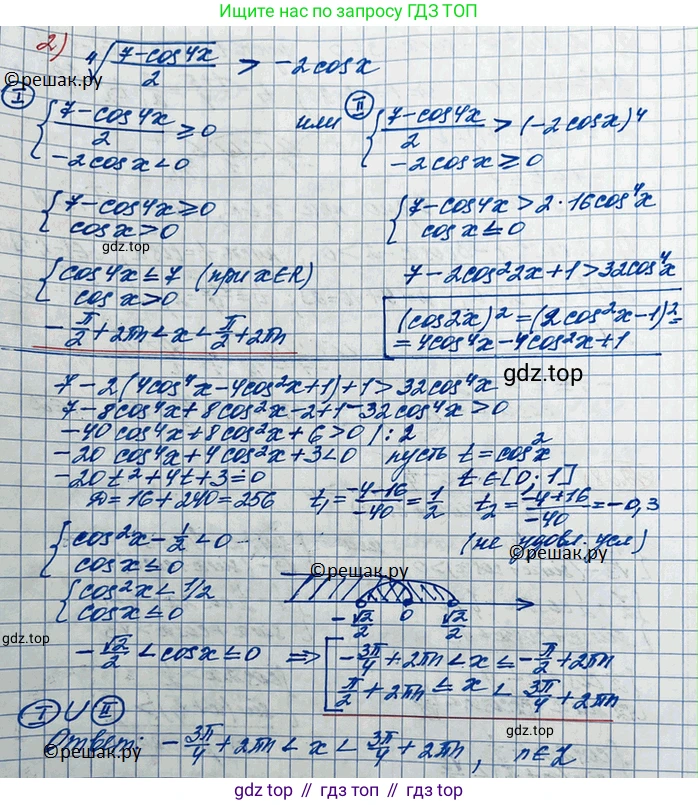 Ищите также по запросу ГДЗ ТОП
2) ⁴√((7-cos4x)/2) > -2cosx
©решак.ру
©решак.ру
I { (7-cos4x)/2 ≥ 0 или II { (7-cos4x)/2 > (-2cosx)⁴
-2cosx < 0 -2cosx ≥ 0
{ 7-cos4x ≥ 0 { 7-cos4x > 2·16cos⁴x
cosx > 0 cosx ≤ 0
gdz.top
{ cos4x ≤ 7 (при x∈R) 7-2cos²2x+1 > 32cos⁴x
cosx > 0
-π/2+2πn < x < π/2+2πn (cos2x)² = (2cos²x-1)² =
= 4cos⁴x-4cos²x+1
gdz.top
7-2(4cos⁴x-4cos²x+1)+1 > 32cos⁴x
7-8cos⁴x+8cos²x-2+1-32cos⁴x > 0
-40cos⁴x+8cos²x+6 > 0 /:2
-20cos⁴x+4cos²x+3 < 0 пусть t = cos²x
-20t²+4t+3 = 0 t∈[0;1]
D = 16+240 = 256 t₁ = (-4-16)/-40 = 1/2 t₂ = (-4+16)/-40 = -0,3
{ cos²x - 1/2 < 0 (не удовл. усл)
cosx ≤ 0
©решак.ру
{ cos²x < 1/2
cosx ≤ 0
-√2/2 0 √2/2
gdz.top
-√2/2 < cosx ≤ 0 ⇒ [ -3π/4+2πn < x ≤ -π/2+2πn
π/2+2πn ≤ x < 3π/4+2πn
I ∪ II
gdz.top
Ответ: -3π/4+2πn < x < 3π/4+2πn, n∈Z
©решак.ру
©решак.ру
gdz.top // gdz.top // gdz.top